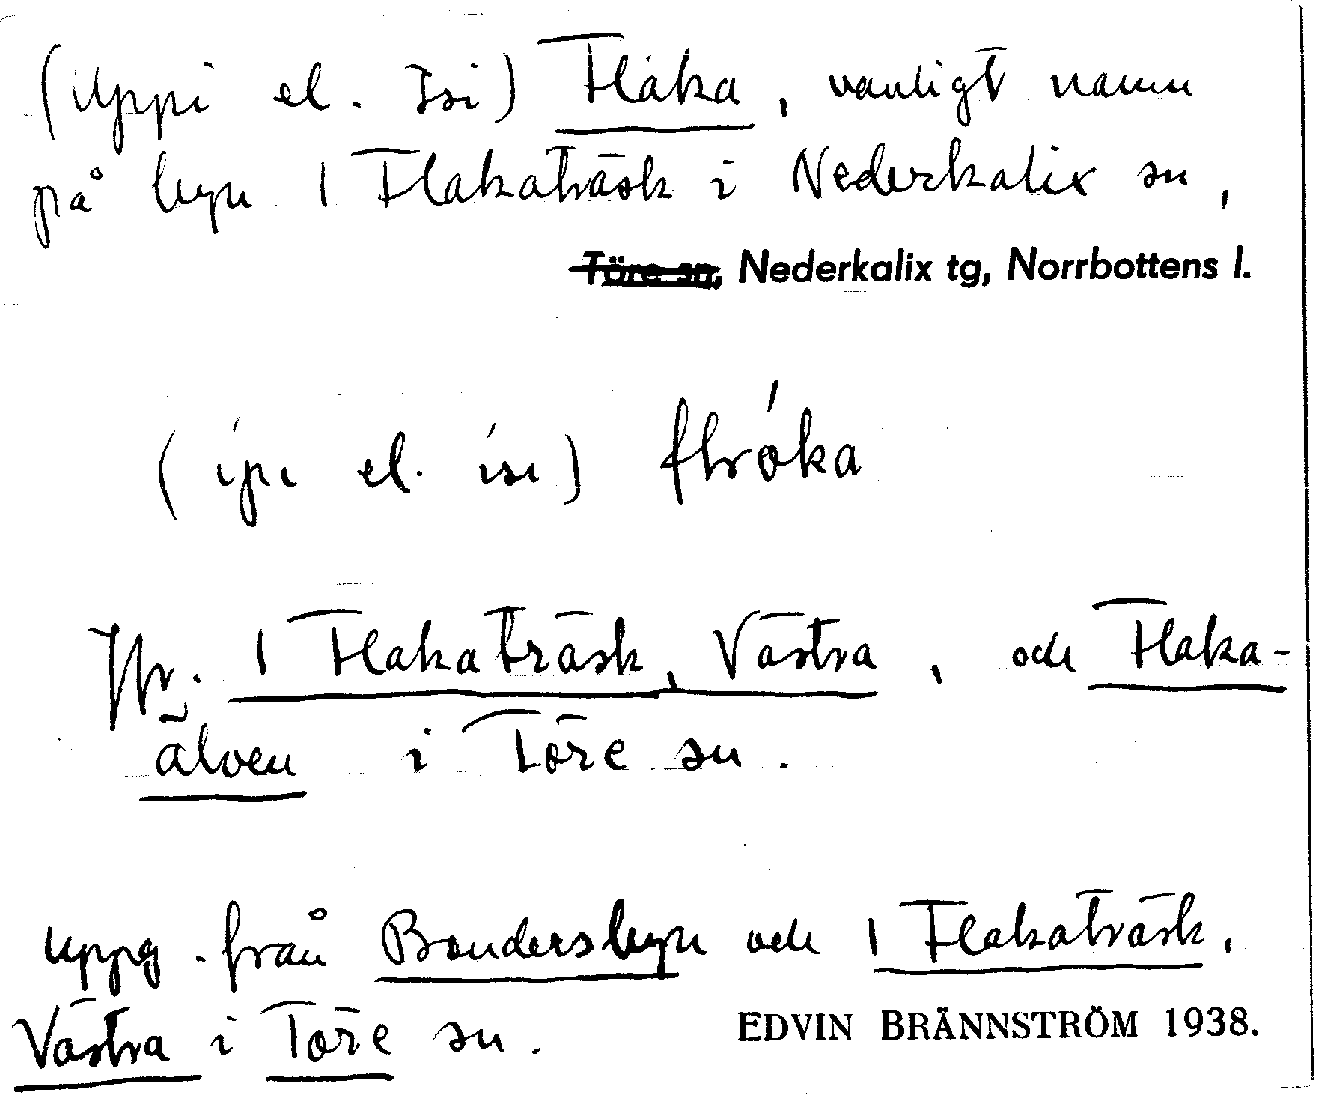 (Uppi el. Isi) Flaka, vanligt namn
på byn 1 Flakaträsk i Nederkalix sn,
Töre sn, Nederkalix tg, Norrbottens l.
( ípi el. ísi) flróka
Jfr. 1 Flakaträsk, Västra, och Flaka-
älven i Töre sn.
uppg. från Bondersbyn och 1 Flakaträsk,
Västra i Töre sn.
EDVIN BRÄNNSTRÖM 1938.